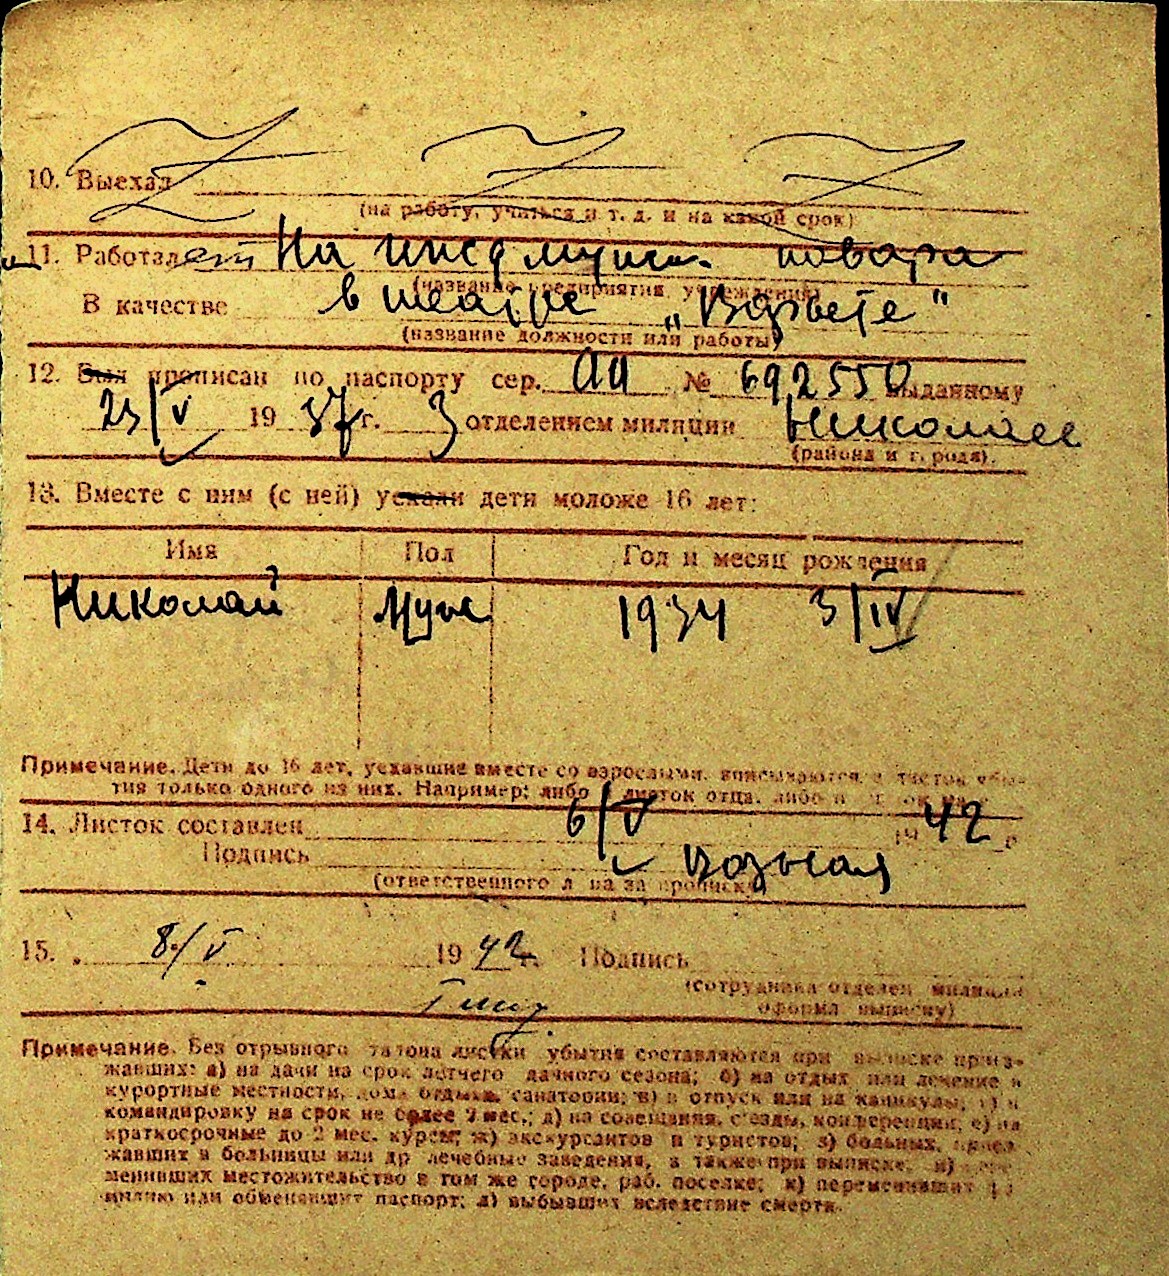 10. Выехал
(на работу, учиться и т. д. и на какой срок)
11. Работает На повара
(название предприятия, учреждения)
В качестве в театре „ "
(название должности или работы)
12. Был прописан по паспорту сер. АИ № 692550 выданному
23/V 1937 г. 3 отделением милиции Николаев
(района и города).
13. Вместе с ним (с ней) уехали дети моложе 16 лет:
Имя Пол Год и месяц рождения
Николай Муж 1934 3/IV
Примечание. Дети до 16 лет, уехавшие вместе со взрослыми, вписываются в листок убы-
тия только одного из них. Например: либо в листок отца, либо
14. Листок составлен 6/V 1942 г.
Подпись
(ответственного лица за прописку)
15. „ 8/V 1942 г. Подпись
(сотрудника отделен. милиции
оформл выписку)
Примечание. Без отрывного талона листки убытия составляются при выписке приез-
жавших: а) на дачи на срок летнего дачного сезона; б) на отдых или лечение в
курортные местности, дома отдыха, санатории; в) в отпуск или на каникулы; г) в
командировку на срок не более 2 мес.; д) на совещания, с'езды, конференции; е) на
краткосрочные до 2 мес. курсы; ж) экскурсантов и туристов; з) больных, приез-
жавших в больницы или др лечебные заведения, а также при выписке: и) пере-
менивших местожительство в том же городе, раб. поселке; к) переменивших фа-
милию или обменявших паспорт; л) выбывших вследствие смерти.